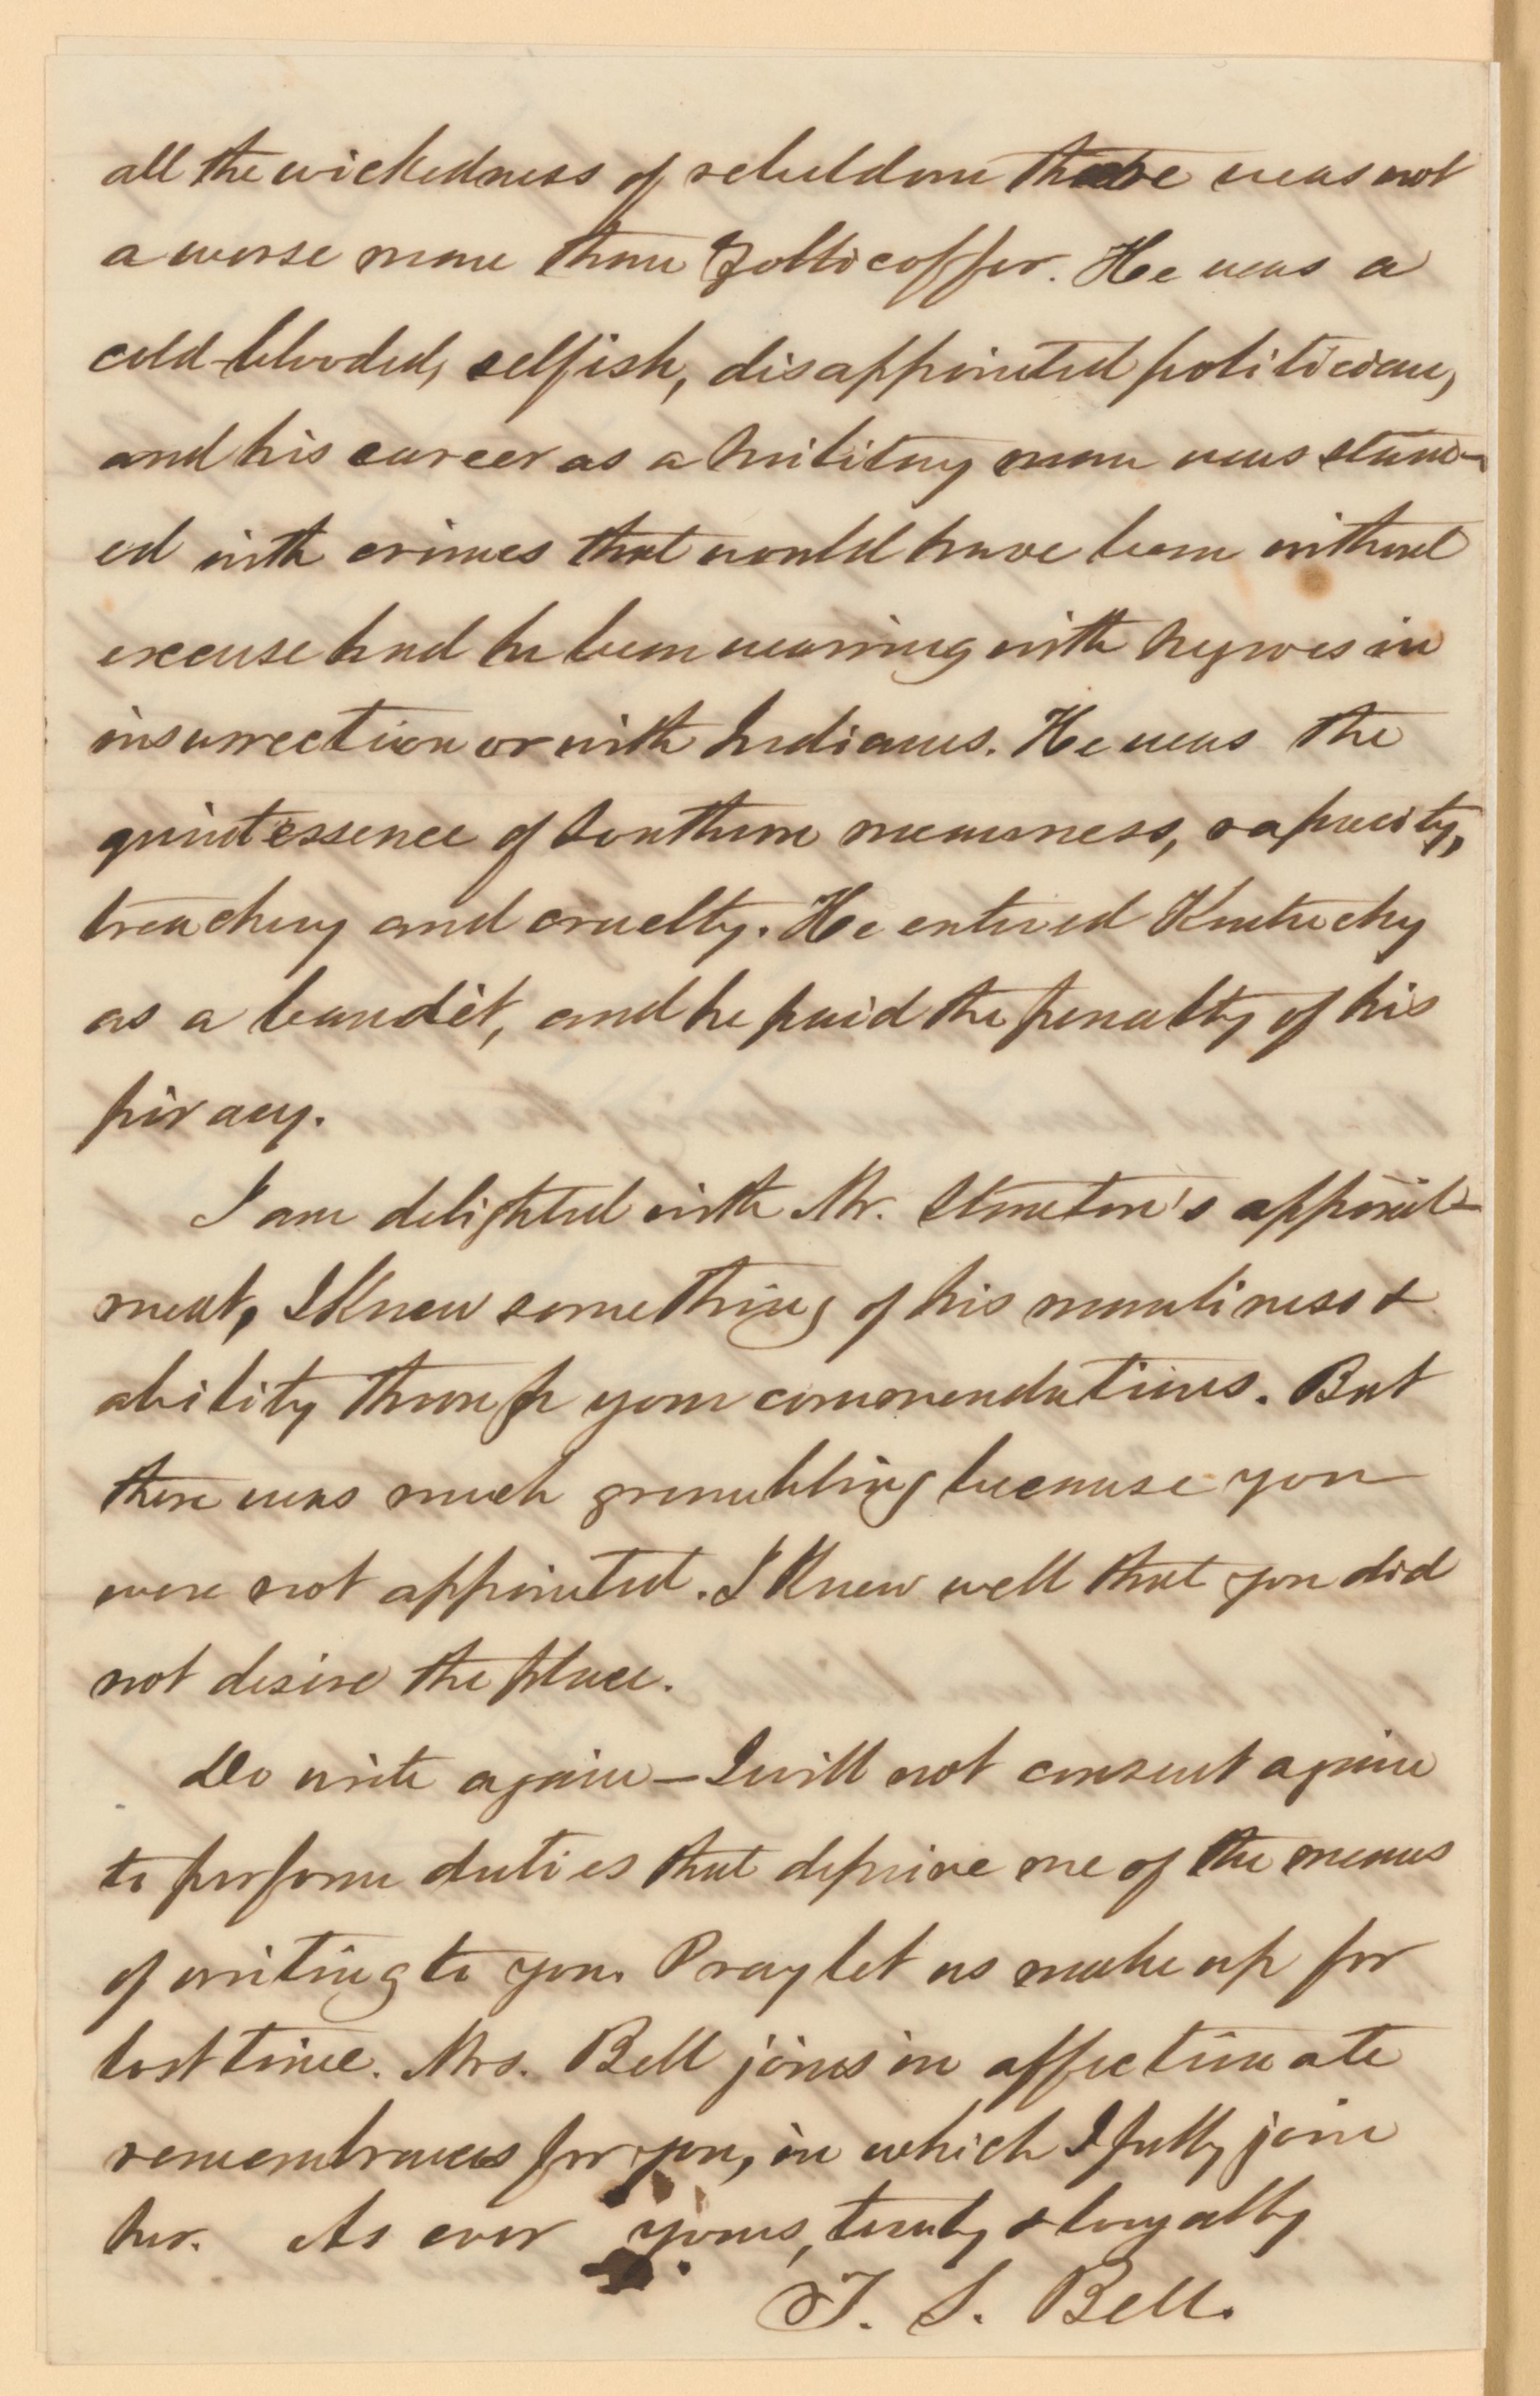 all the wickedness of rebeldom there was not
a worse man than Zollicoffer. He was a
cold-blooded, selfish, disappointed politician,
and his career as a military man was stain-
ed with crimes that would have been without
excuse had he been warring with negroes in
insurrection or with Indians. He was the
quintessence of Southern meanness, rapacity,
treachery and cruelty. He entered Kentucky
as a bandit, and he paid the penalty of his
piracy.
I am delighted with Mr. Stanton's appoint-
ment, I knew something of his manliness &
ability through your commendations. But
there was much grumbling because you
were not appointed. I knew well that you did
not desire the place.
Do write again – I will not consent again
to perform duties that deprive me of the means
of writing to you. Pray let us make up for
lost time. Mrs. Bell joins in affectionate
remembrances for you, in which I fully join
her. As ever yours, truly & loyally
T. S. Bell.